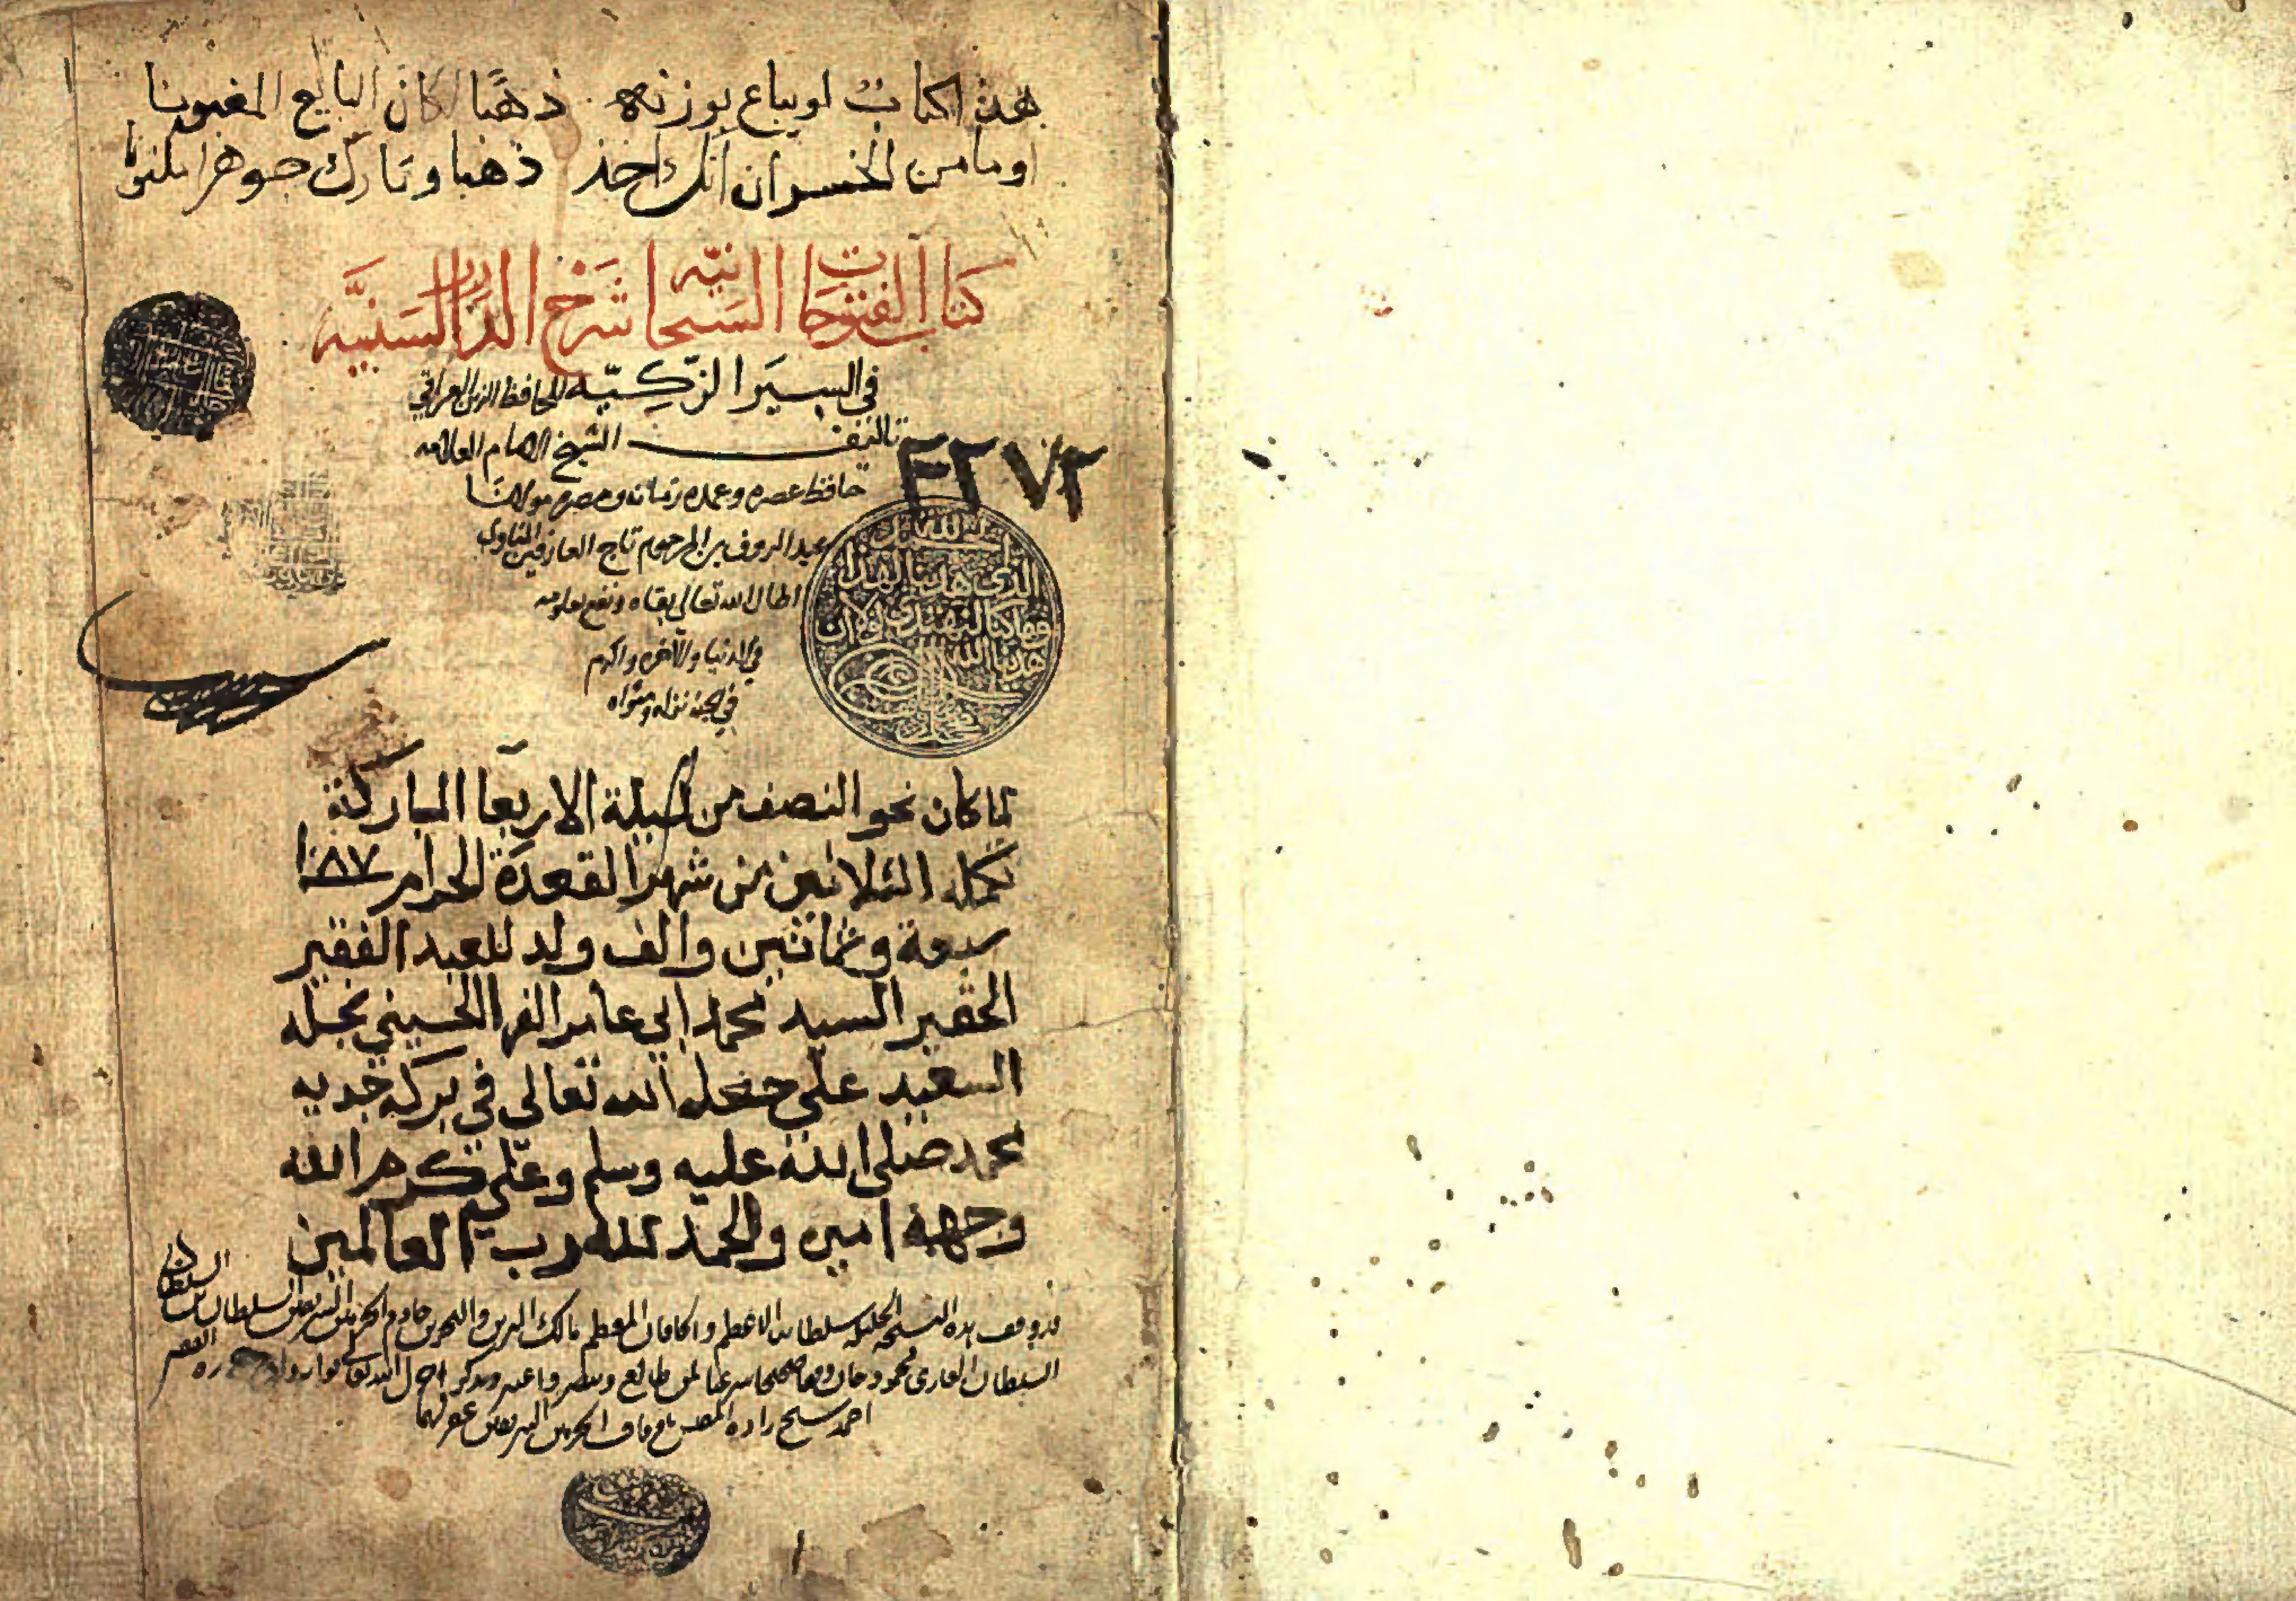 هذا كتاب لو يباع بوزنه ذهبا لكان البايع المغبونا
او ما من الخسران انك اخذ ذهبا وتارك جوهرا مكنونا
كتاب الفتوحات السبحانية شرح الدرر السنيه
في السير الزكيه للحافظ الزين العراقي
تاليف الشيخ الامام العلامه
٣٢٧٢
حافظ عصره وعمدة زمانه ومصره مولانا
عبد الروف بن المرحوم تاج العارفين المناوي
اطال الله تعالى بقاه ونفع بعلومه
في الدنيا والآخره واكرم
في الجنة نزله ومثواه
الحمد لله
الذي هدينا لهذا
وما كنا لنهتدي لولا ان
هدينا الله
لما كان نحو النصف من ليلة الاربعا المباركة
تكملة الثلاثين من شهر القعدة الحرام ١٠٨٧
سبعة وثمانين والف ولد للعبد الفقير
الحقير السيد محمد ابي عامر الحسيني نجله
السعيد علي جعله الله تعالى في بركة جديه
محمد صلى الله عليه وسلم وعلي كرم الله
وجهه امين والحمد لله رب العالمين
قد وقف هذه النسخة الجليله سلطاننا الاعظم والخاقان المعظم مالك البرين والبحرين خادم الحرمين الشريفين السلطان بن السلطان
السلطان الغازي محمود خان وقفا صحيحا شرعيا لمن طالع وتبصر واعتبر وتذكر اجزل الله تعالى ثوابه الفقير
احمد شيخ زاده المفتش باوقاف الحرمين الشريفين غفر لهما
١